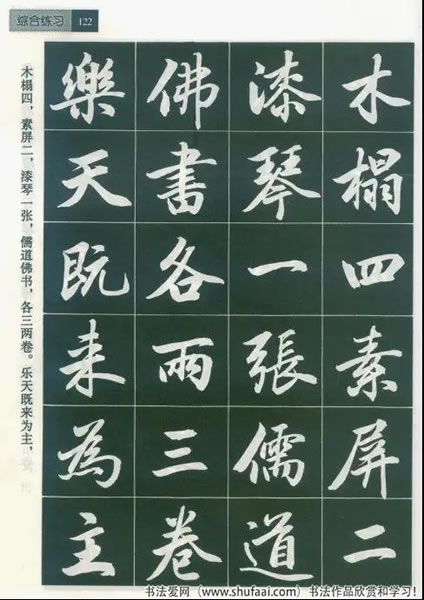 综合练习 122
木榻四素屏二
漆琴一張儒道
佛書各三兩卷
樂天既来為主
木榻四，素屏二，漆琴一张，儒道佛书，各三两卷。乐天既来为主，
书法爱网（www.shufaai.com）书法作品欣赏和学习！